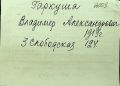 Гаркуша
Владимир Александрович
1919г.
3 Слободская 124